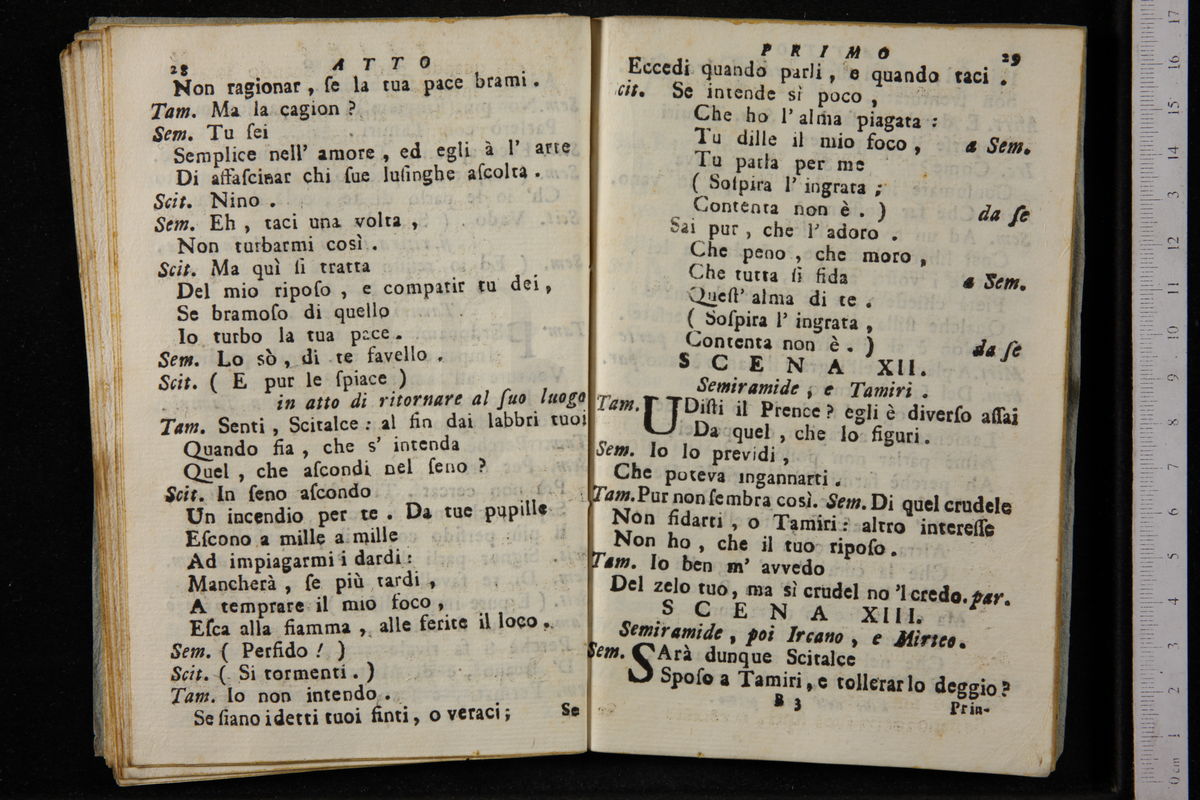 28 ATTO
Non ragionar, ſe la tua pace brami.
Tam. Ma la cagion?
Sem. Tu ſei
Semplice nell' amore, ed egli à l' arte
Di affaſcinar chi ſue luſinghe aſcolta.
Scit. Nino.
Sem. Eh, taci una volta,
Non turbarmi così.
Scit. Ma quì ſi tratta
Del mio ripoſo, e compatir tu dei,
Se bramoſo di quello
Io turbo la tua pace.
Sem. Lo sò, di te favello.
Scit. ( E pur le ſpiace )
in atto di ritornare al ſuo luogo
Tam. Senti, Scitalce: al fin dai labbri tuoi
Quando fia, che s' intenda
Quel, che aſcondi nel ſeno?
Scit. In ſeno aſcondo
Un incendio per te. Da tue pupille
Eſcono a mille a mille
Ad impiagarmi i dardi:
Mancherà, ſe più tardi,
A temprare il mio foco,
Eſca alla fiamma, alle ferite il loco.
Sem. ( Perfido! )
Scit. ( Si tormenti. )
Tam. Io non intendo.
Se ſiano i detti tuoi finti, o veraci;
Se
PRIMO 29
Eccedi quando parli, e quando taci.
cit. Se intende sì poco,
Che ho l' alma piagata:
Tu dille il mio foco, a Sem.
Tu parla per me
( Soſpira l' ingrata;
Contenta non è. ) da ſe
Sai pur, che l' adoro.
Che peno, che moro,
Che tutta ſi fida a Sem.
Queſt' alma di te.
( Soſpira l' ingrata,
Contenta non è. ) da ſe
SCENA XII.
Semiramide, e Tamiri.
Tam. UDiſti il Prence? egli è diverſo aſſai
Da quel, che lo figuri.
Sem. Io lo previdi,
Che poteva ingannarti.
Tam. Pur non ſembra così. Sem. Di quel crudele
Non fidarti, o Tamiri: altro intereſſe
Non ho, che il tuo ripoſo.
Tam. Io ben m' avvedo
Del zelo tuo, ma sì crudel no 'l credo. par.
SCENA XIII.
Semiramide, poi Ircano, e Mirteo.
Sem. SArà dunque Scitalce
Spoſo a Tamiri, e tollerarlo deggio?
B 3 Prin-
17
16
15
14
13
12
11
10
9
8
7
6
5
4
3
2
1
0 cm